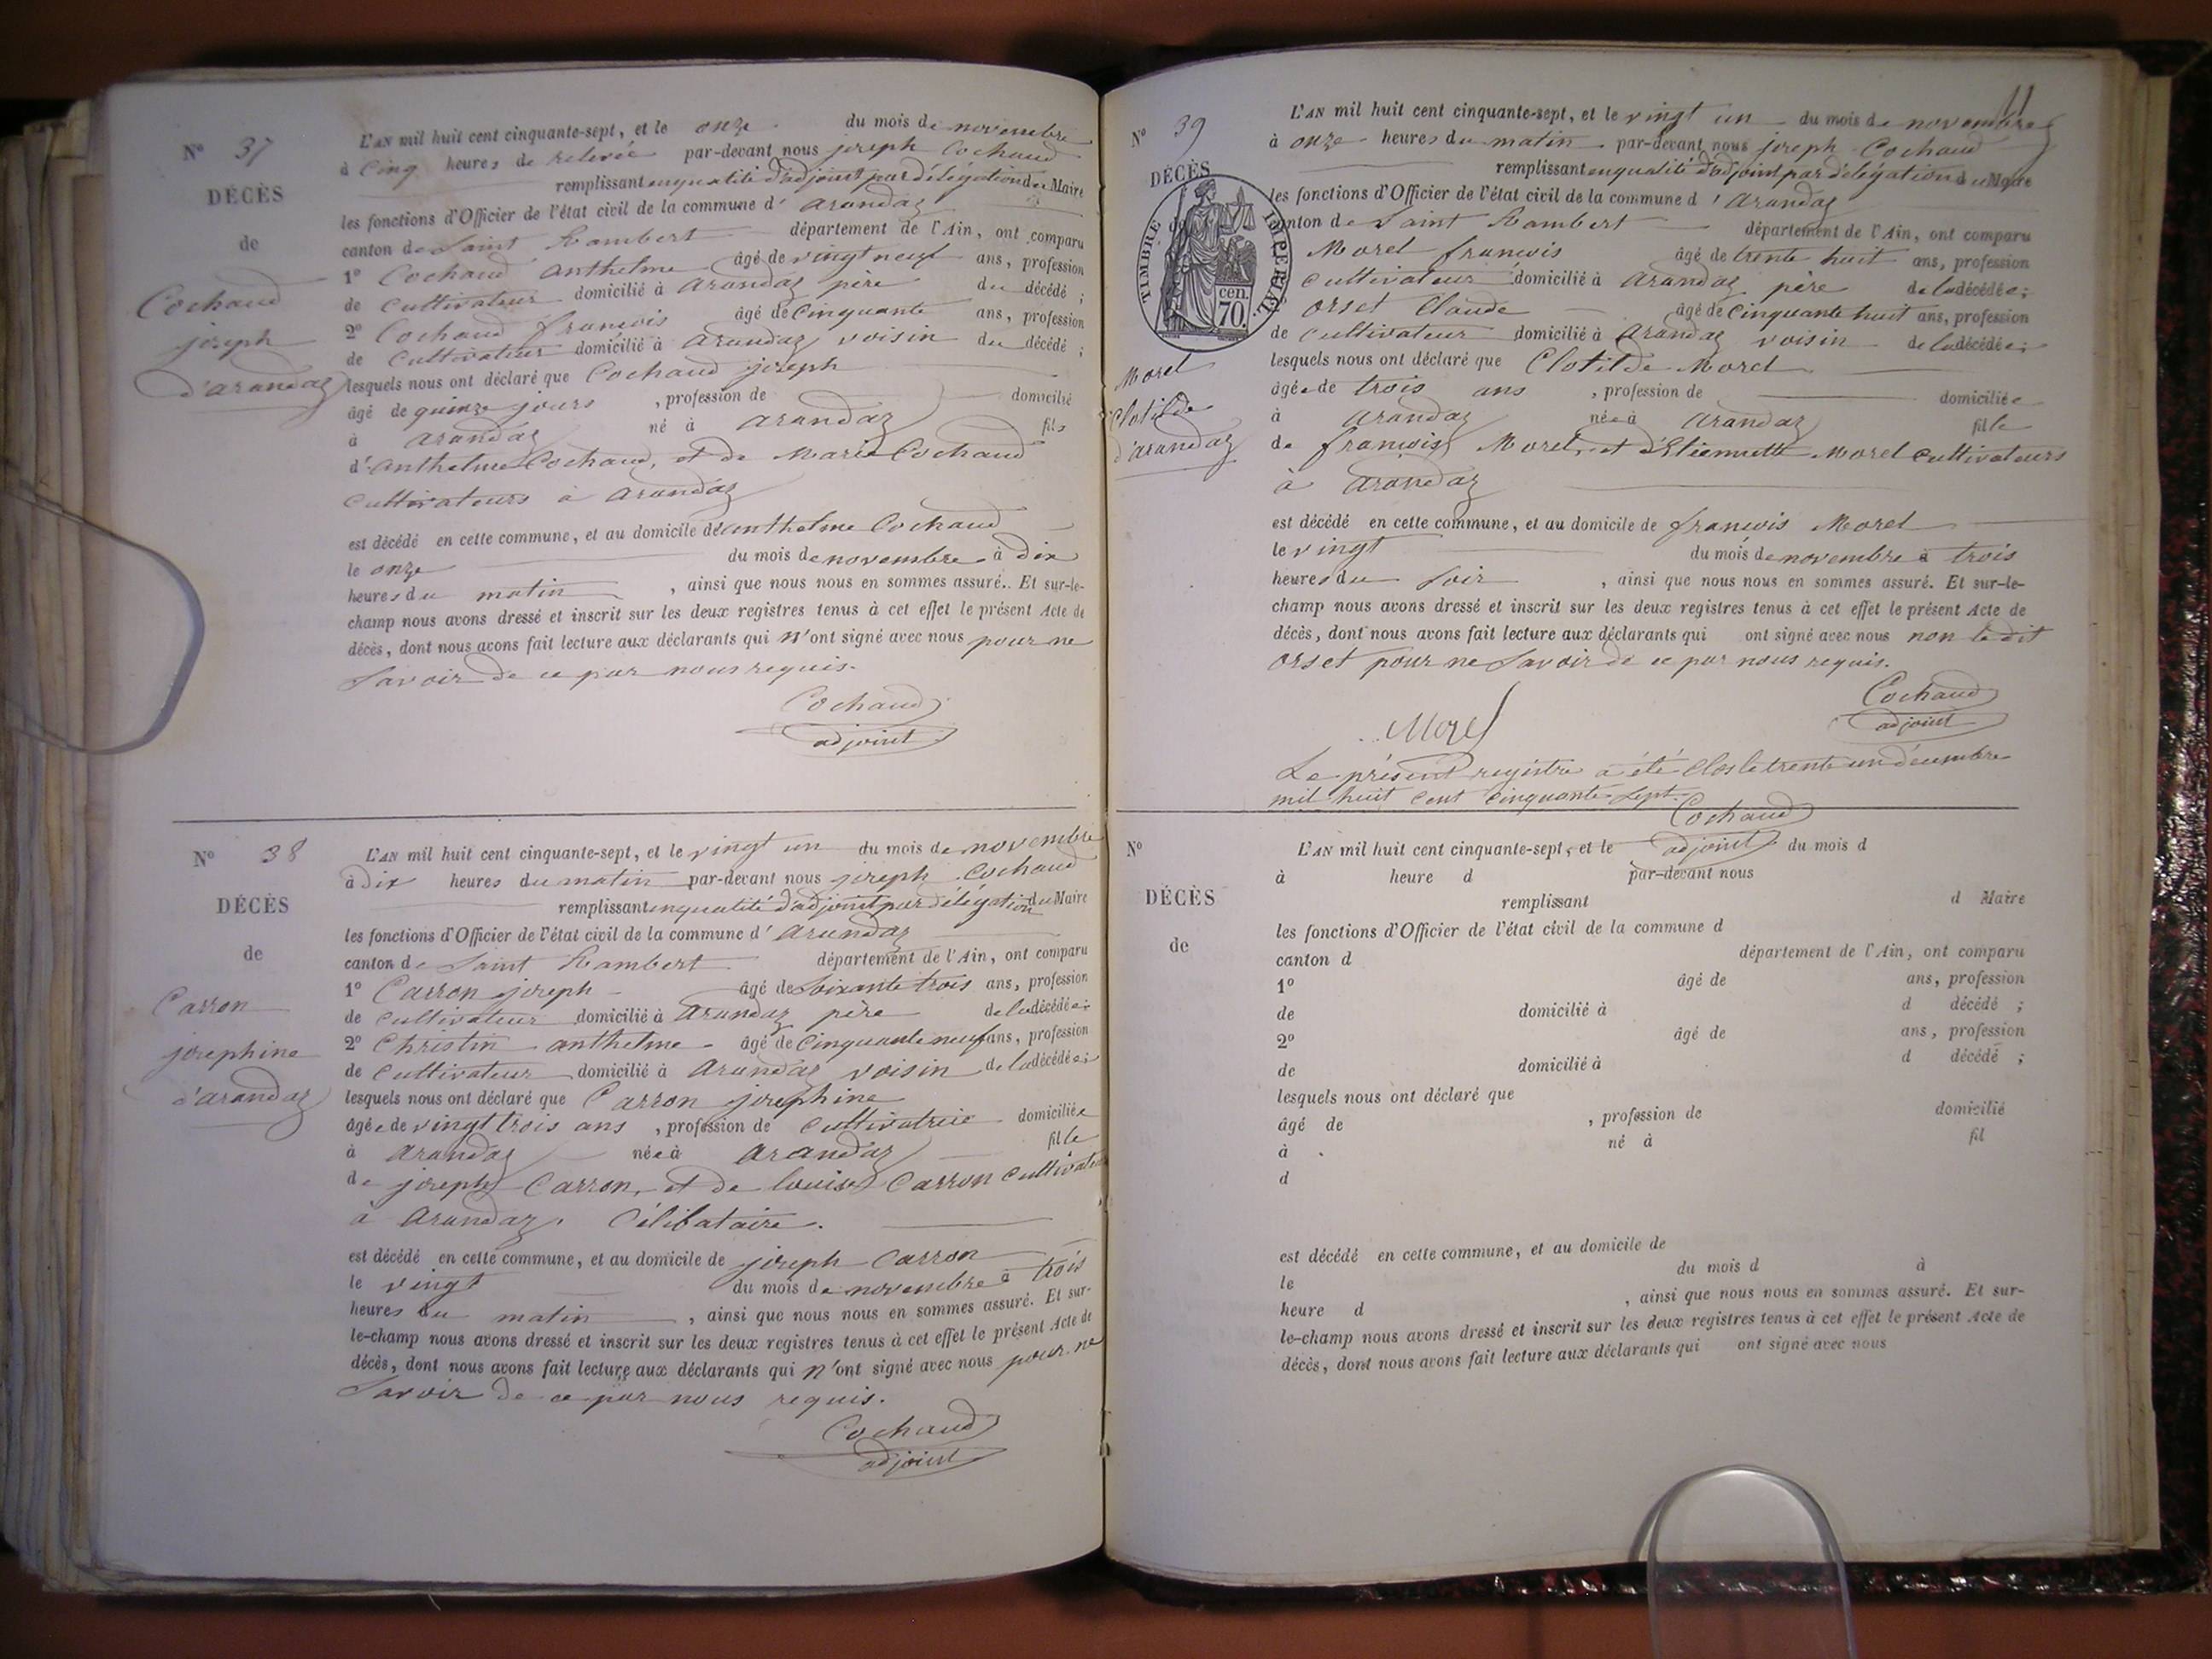 N° 37
DÉCÈS
de
Cochaud
joseph
d'arandaz
L'AN mil huit cent cinquante-sept, et le onze du mois de novembre
à Cinq heures de relevée par-devant nous joseph Cochaud
remplissant en qualité d'adjoint par délégation du Maire
les fonctions d'Officier de l'état civil de la commune d'arandaz
canton de Saint Rambert département de l'Ain, ont comparu
1° Cochaud anthelme âgé de vingt neuf ans, profession
de cultivateur domicilié à arandaz père du décédé ;
2° Cochaud francois âgé de Cinquante ans, profession
de Cultivateur domicilié à arandaz voisin du décédé ;
lesquels nous ont déclaré que Cochaud joseph
âgé de quinze jours , profession de domicilié
à arandaz né à arandaz fils
d'anthelme Cochaud, et de Marie Cochaud
cultivateurs à arandaz
est décédé en cette commune, et au domicile d'anthelme Cochaud
le onze du mois de novembre à dix
heures du matin , ainsi que nous nous en sommes assuré. Et sur-le-
champ nous avons dressé et inscrit sur les deux registres tenus à cet effet le présent Acte de
décès, dont nous avons fait lecture aux déclarants qui n'ont signé avec nous pour ne
Savoir de ce par nous requis.
Cochaud
adjoint
N° 38
DÉCÈS
de
Carron
josephine
d'arandaz
L'AN mil huit cent cinquante-sept, et le vingt un du mois de novembre
à dix heures du matin par-devant nous joseph Cochaud
remplissant en qualité d'adjoint par délégation du Maire
les fonctions d'Officier de l'état civil de la commune d'arandaz
canton de Saint Rambert département de l'Ain, ont comparu
1° Carron joseph âgé de Soixante trois ans, profession
de cultivateur domicilié à arandaz père de la décédée ;
2° Christin anthelme âgé de Cinquante neuf ans, profession
de Cultivateur domicilié à arandaz voisin de la décédée ;
lesquels nous ont déclaré que Carron josephine
âgée de vingt trois ans , profession de Cultivatrice domiciliée
à arandaz née à arandaz fille
de joseph Carron, et de louise Carron Cultivat
à arandaz. Célibataire.
est décédé en cette commune, et au domicile de joseph Carron
le vingt du mois de novembre à trois
heures du matin , ainsi que nous nous en sommes assuré. Et sur-
le-champ nous avons dressé et inscrit sur les deux registres tenus à cet effet le présent Acte de
décès, dont nous avons fait lecture aux déclarants qui n'ont signé avec nous pour ne
Savoir de ce par nous requis.
Cochaud
adjoint
N° 39
DÉCÈS
de
TIMBRE IMPERIAL
cen. 70.
Morel
Clotilde
d'arandaz
11
L'AN mil huit cent cinquante-sept, et le vingt un du mois de novembre
à onze heures du matin par-devant nous joseph Cochaud
remplissant en qualité d'adjoint par délégation du Maire
les fonctions d'Officier de l'état civil de la commune d'arandaz
canton de Saint Rambert département de l'Ain, ont comparu
Morel francois âgé de trente huit ans, profession
cultivateur domicilié à arandaz père de la décédée ;
orset Claude âgé de Cinquante huit ans, profession
de cultivateur domicilié à arandaz voisin de la décédée ;
lesquels nous ont déclaré que Clotilde Morel
âgée de trois ans , profession de domiciliée
à arandaz née à arandaz fille
de françois Morel, et d'Etiennette Morel cultivateurs
à arandaz
est décédé en cette commune, et au domicile de francois Morel
le vingt du mois de novembre à trois
heures du soir , ainsi que nous nous en sommes assuré. Et sur-le-
champ nous avons dressé et inscrit sur les deux registres tenus à cet effet le présent Acte de
décès, dont nous avons fait lecture aux déclarants qui ont signé avec nous non le dit
orset pour ne Savoir de ce par nous requis.
Cochaud
adjoint
Morel
Le présent registre a été clos le trente un décembre
mil huit cent cinquante Sept.
Cochaud
adjoint
N°
DÉCÈS
de
L'AN mil huit cent cinquante-sept, et le du mois d
à heure d par-devant nous
remplissant d Maire
les fonctions d'Officier de l'état civil de la commune d
canton d département de l'Ain, ont comparu
1° âgé de ans, profession
de domicilié à d décédé ;
2° âgé de ans, profession
de domicilié à d décédé ;
lesquels nous ont déclaré que
âgé de , profession de domicilié
à né à fil
d
est décédé en cette commune, et au domicile de
le du mois d à
heure d , ainsi que nous nous en sommes assuré. Et sur-
le-champ nous avons dressé et inscrit sur les deux registres tenus à cet effet le présent Acte de
décès, dont nous avons fait lecture aux déclarants qui ont signé avec nous